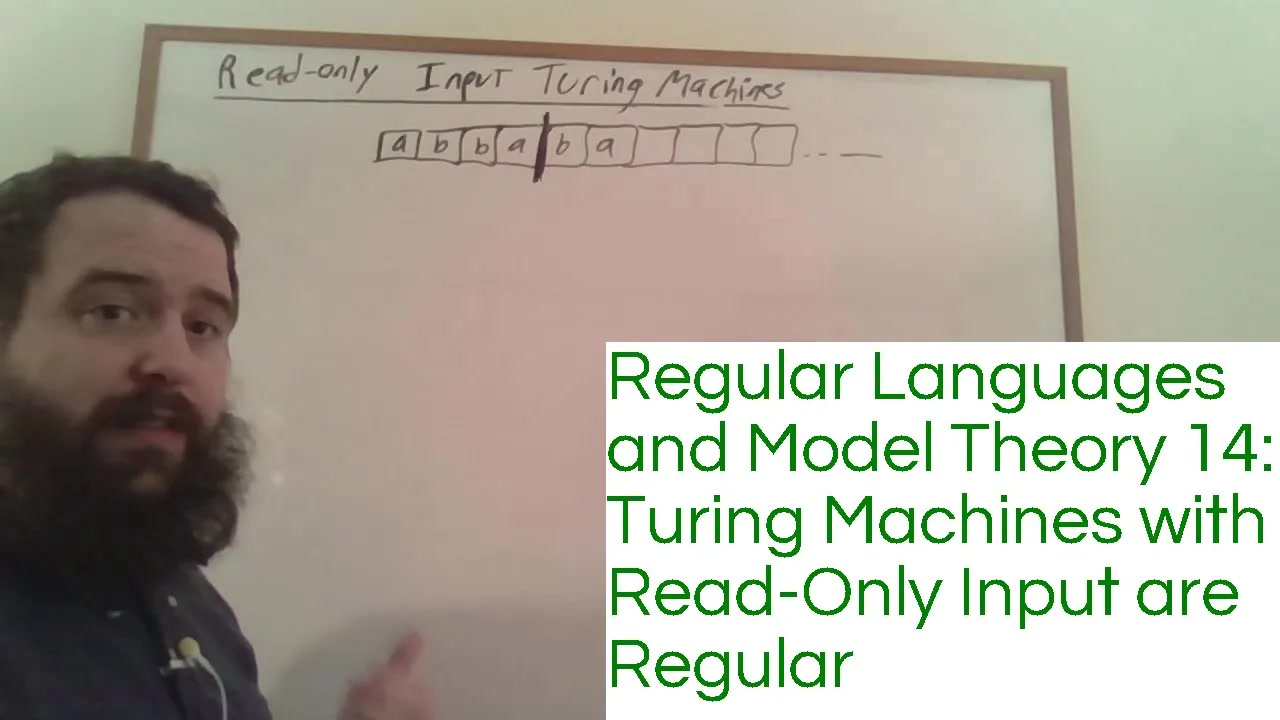 Read-only Input Turing Machines
a b b a b a
Regular Languages
and Model Theory 14:
Turing Machines with
Read-Only Input are
Regular